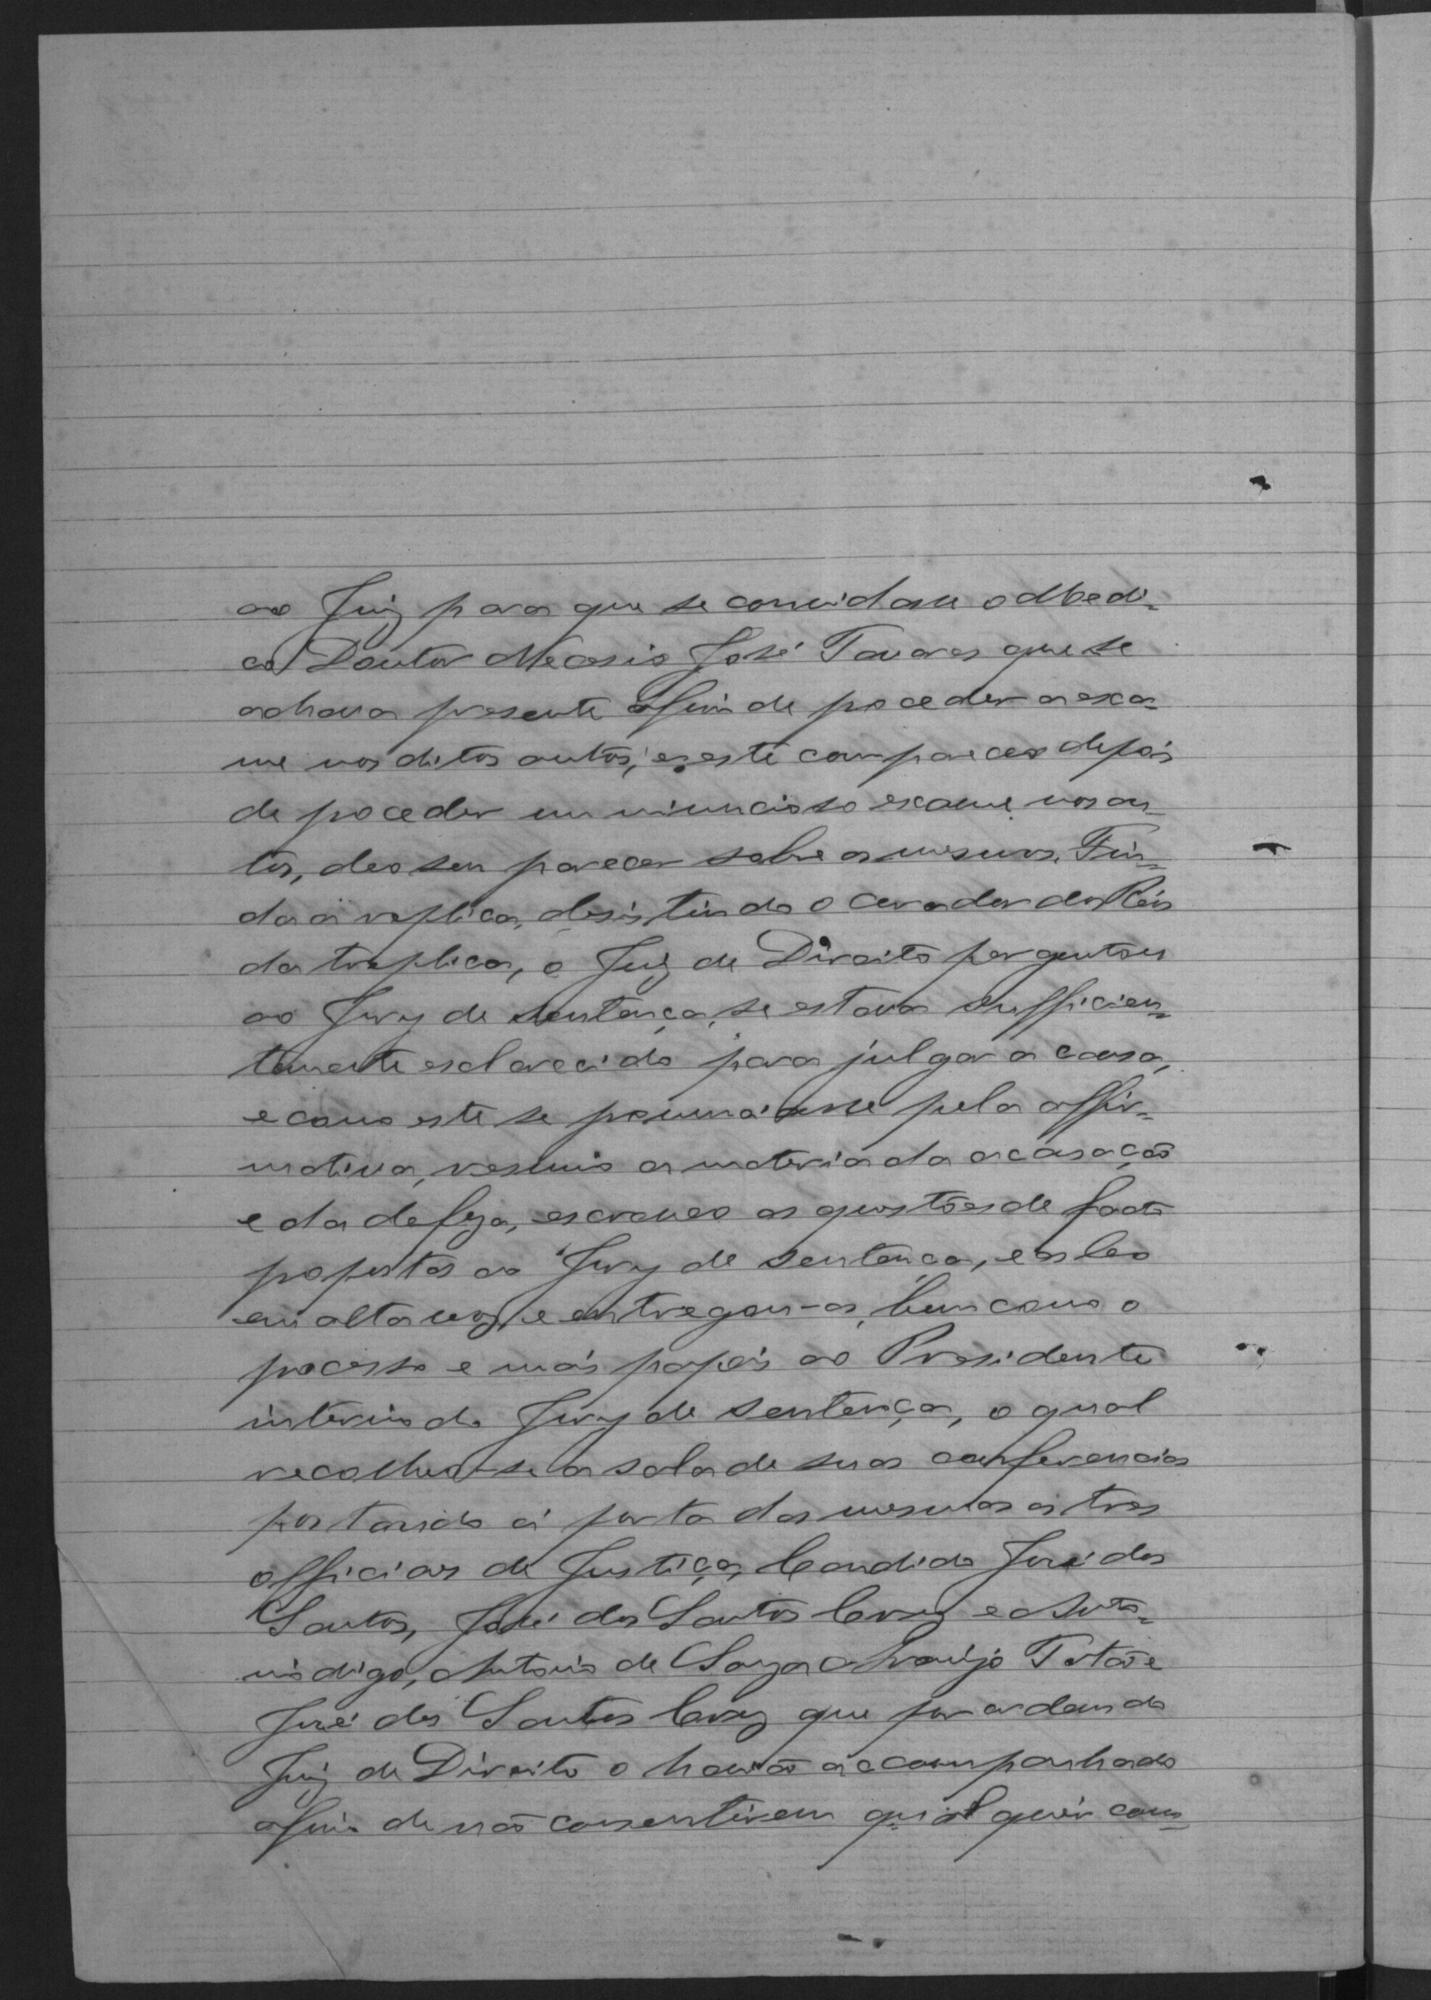 ao Juiz para que se convidasse o Medi-
co Doutor Necesio José Tavares que se
achava presente afim de proceder a exa-
me nos ditos autos, e este compareceo depois
de proceder um minuncioso exame nos au-
tos, deo seu parecer sobre os mesmos. Fin-
da a replica, desistindo o Curador do Réu
da treplica, o Juiz de Direito perguntou
ao Jury de sentença, se estava sufficien-
temente esclarecido para julgar a causa,
e como este se pronunciasse pela affir-
mativa, resumio a materia da acusação
e da defeza, escreveo as questões de facto
propostas ao Jury de sentença, e as leo
em alta voz, e entregou-as, bem como o
processo e mais papeis ao Presidente
interino do Jury de sentença, o qual
recolheu-se a sala de suas conferencias
postando á porta das mesmas os tres
officiaes de Justiça, Candido José dos
Santos, José dos Santos Cruz e Anto-
nio digo, Antonio de Souza Araujo Tatão e
José dos Santos Cruz que por ordem do
Juiz de Direito o havião accompanhado
afim de não consentirem qualquer com-